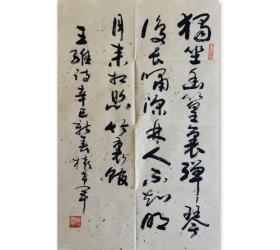 獨坐幽篁裏彈琴
復長嘯深林人不知明
月来相照竹裏館
王維詩辛巳新春